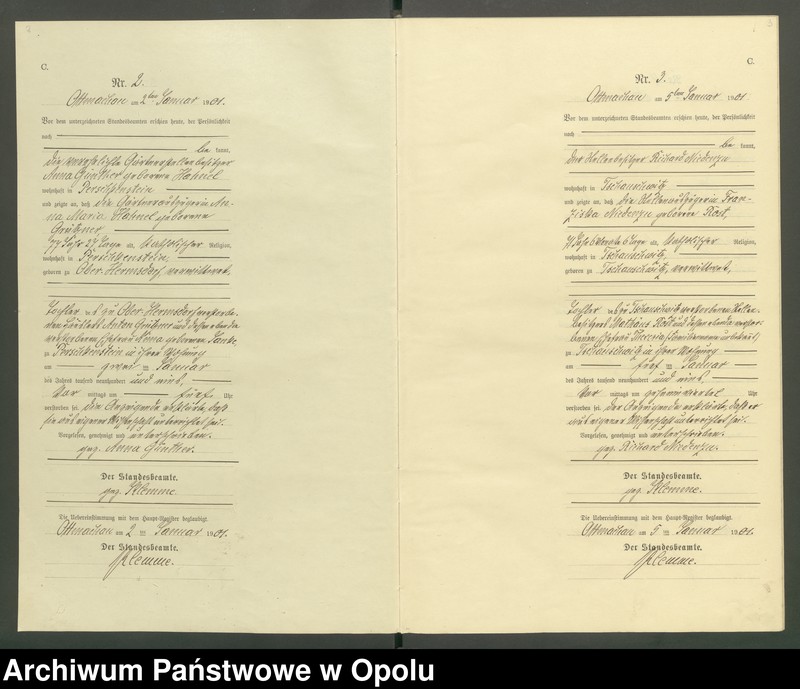 C.
Nr. 2.
Ottmachau am 2ten Januar 1901.
Vor dem unterzeichneten Standesbeamten erschien heute, der Persönlichkeit
nach
be kannt,
die verehelichte Gärtnerstellenbesitzer
Anna Günther geborene Hähnel
wohnhaft in Perschkenstein
und zeigte an, daß die Gärtnerauszügerin An-
na Maria Hähnel geborene
77 Jahr 27 Tage alt, katholischer Religion,
wohnhaft in Perschkenstein,
geboren zu Ober-Hermsdorf verwittwet,
Tochter des zu Ober-Hermsdorf verstorbe-
nen Anton und dessen
verstorbenen Ehefrau Anna geborenen
zu Perschkenstein in ihrer Wohnung
am zwei ten Januar
des Jahres tausend neunhundert und eins,
Vor mittags um fünf Uhr
verstorben sei. Die Anzeigende erklärte, daß
sie aus eigener Wissenschaft unterrichtet sei.
Vorgelesen, genehmigt und unterschrieben.
gez. Anna Günther.
Der Standesbeamte.
gez. Klemme.
Die Uebereinstimmung mit dem Haupt-Register beglaubigt.
Ottmachau am 2 ten Januar 1901.
Der Standesbeamte.
Klemme.
C.
Nr. 3.
Ottmachau am 5ten Januar 1901
Vor dem unterzeichneten Standesbeamten erschien heute, der Persönlichkeit
nach
be kannt,
der Stellenbesitzer Richard Niedenzu
wohnhaft in Tschauschwitz
und zeigte an, daß die Stellenauszügerin Fran-
ziska Niedenzu geborene Rost,
71 Jahr 6 Monate 6 Tage alt, katholischer Religion,
wohnhaft in Tschauschwitz,
geboren zu Tschauschwitz, verwittwet,
Tochter des zu Tschauschwitz verstorbenen Stellen-
besitzers Mathäus Rost und dessen verstor-
benen Ehefrau Theresia (Familiennamen unbekannt)
zu Tschauschwitz in ihrer Wohnung
am fünf ten Januar
des Jahres tausend neunhundert und eins,
Vor mittags um Uhr
verstorben sei. Der Anzeigende erklärte, daß er
aus eigener Wissenschaft unterrichtet sei.
Vorgelesen, genehmigt und unterschrieben.
gez. Richard Niedenzu.
Der Standesbeamte.
gez. Klemme.
Die Uebereinstimmung mit dem Haupt-Register beglaubigt.
Ottmachau am 5 ten Januar 1901.
Der Standesbeamte.
Klemme.
Archiwum Państwowe w Opolu